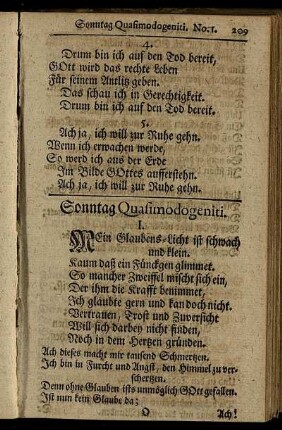 Sonntag Quasimodogeniti. No: 1. 209
4.
Drum bin ich auf den Tod bereit,
GOtt wird das rechte Leben
Für seinem Antlitz geben.
Das schau ich in Gerechtigkeit.
Drum bin ich auf den Tod bereit.
5.
Ach ja, ich will zur Ruhe gehn.
Wenn ich erwachen werde,
So werd ich aus der Erde
Im Bilde GOttes aufferstehn.
Ach ja, ich will zur Ruhe gehn.
Sonntag Quasimodogeniti.
I.
MEin Glaubens-Licht ist schwach
und klein.
Kaum daß ein Fünckgen glimmet.
So mancher Zweiffel mischt sich ein,
Der ihm die Krafft benimmet,
Ich glaubte gern und kan doch nicht.
Vertrauen, Trost und Zuversicht
Will sich darbey nicht finden,
Noch in dem Hertzen gründen.
Ach dieses macht mir tausend Schmertzen.
Ich bin in Furcht und Angst, den Himmel zu ver-
schertzen.
Denn ohne Glauben ists unmöglich GOtt gefallen.
Ist nun kein Glaube da;
O Ach!